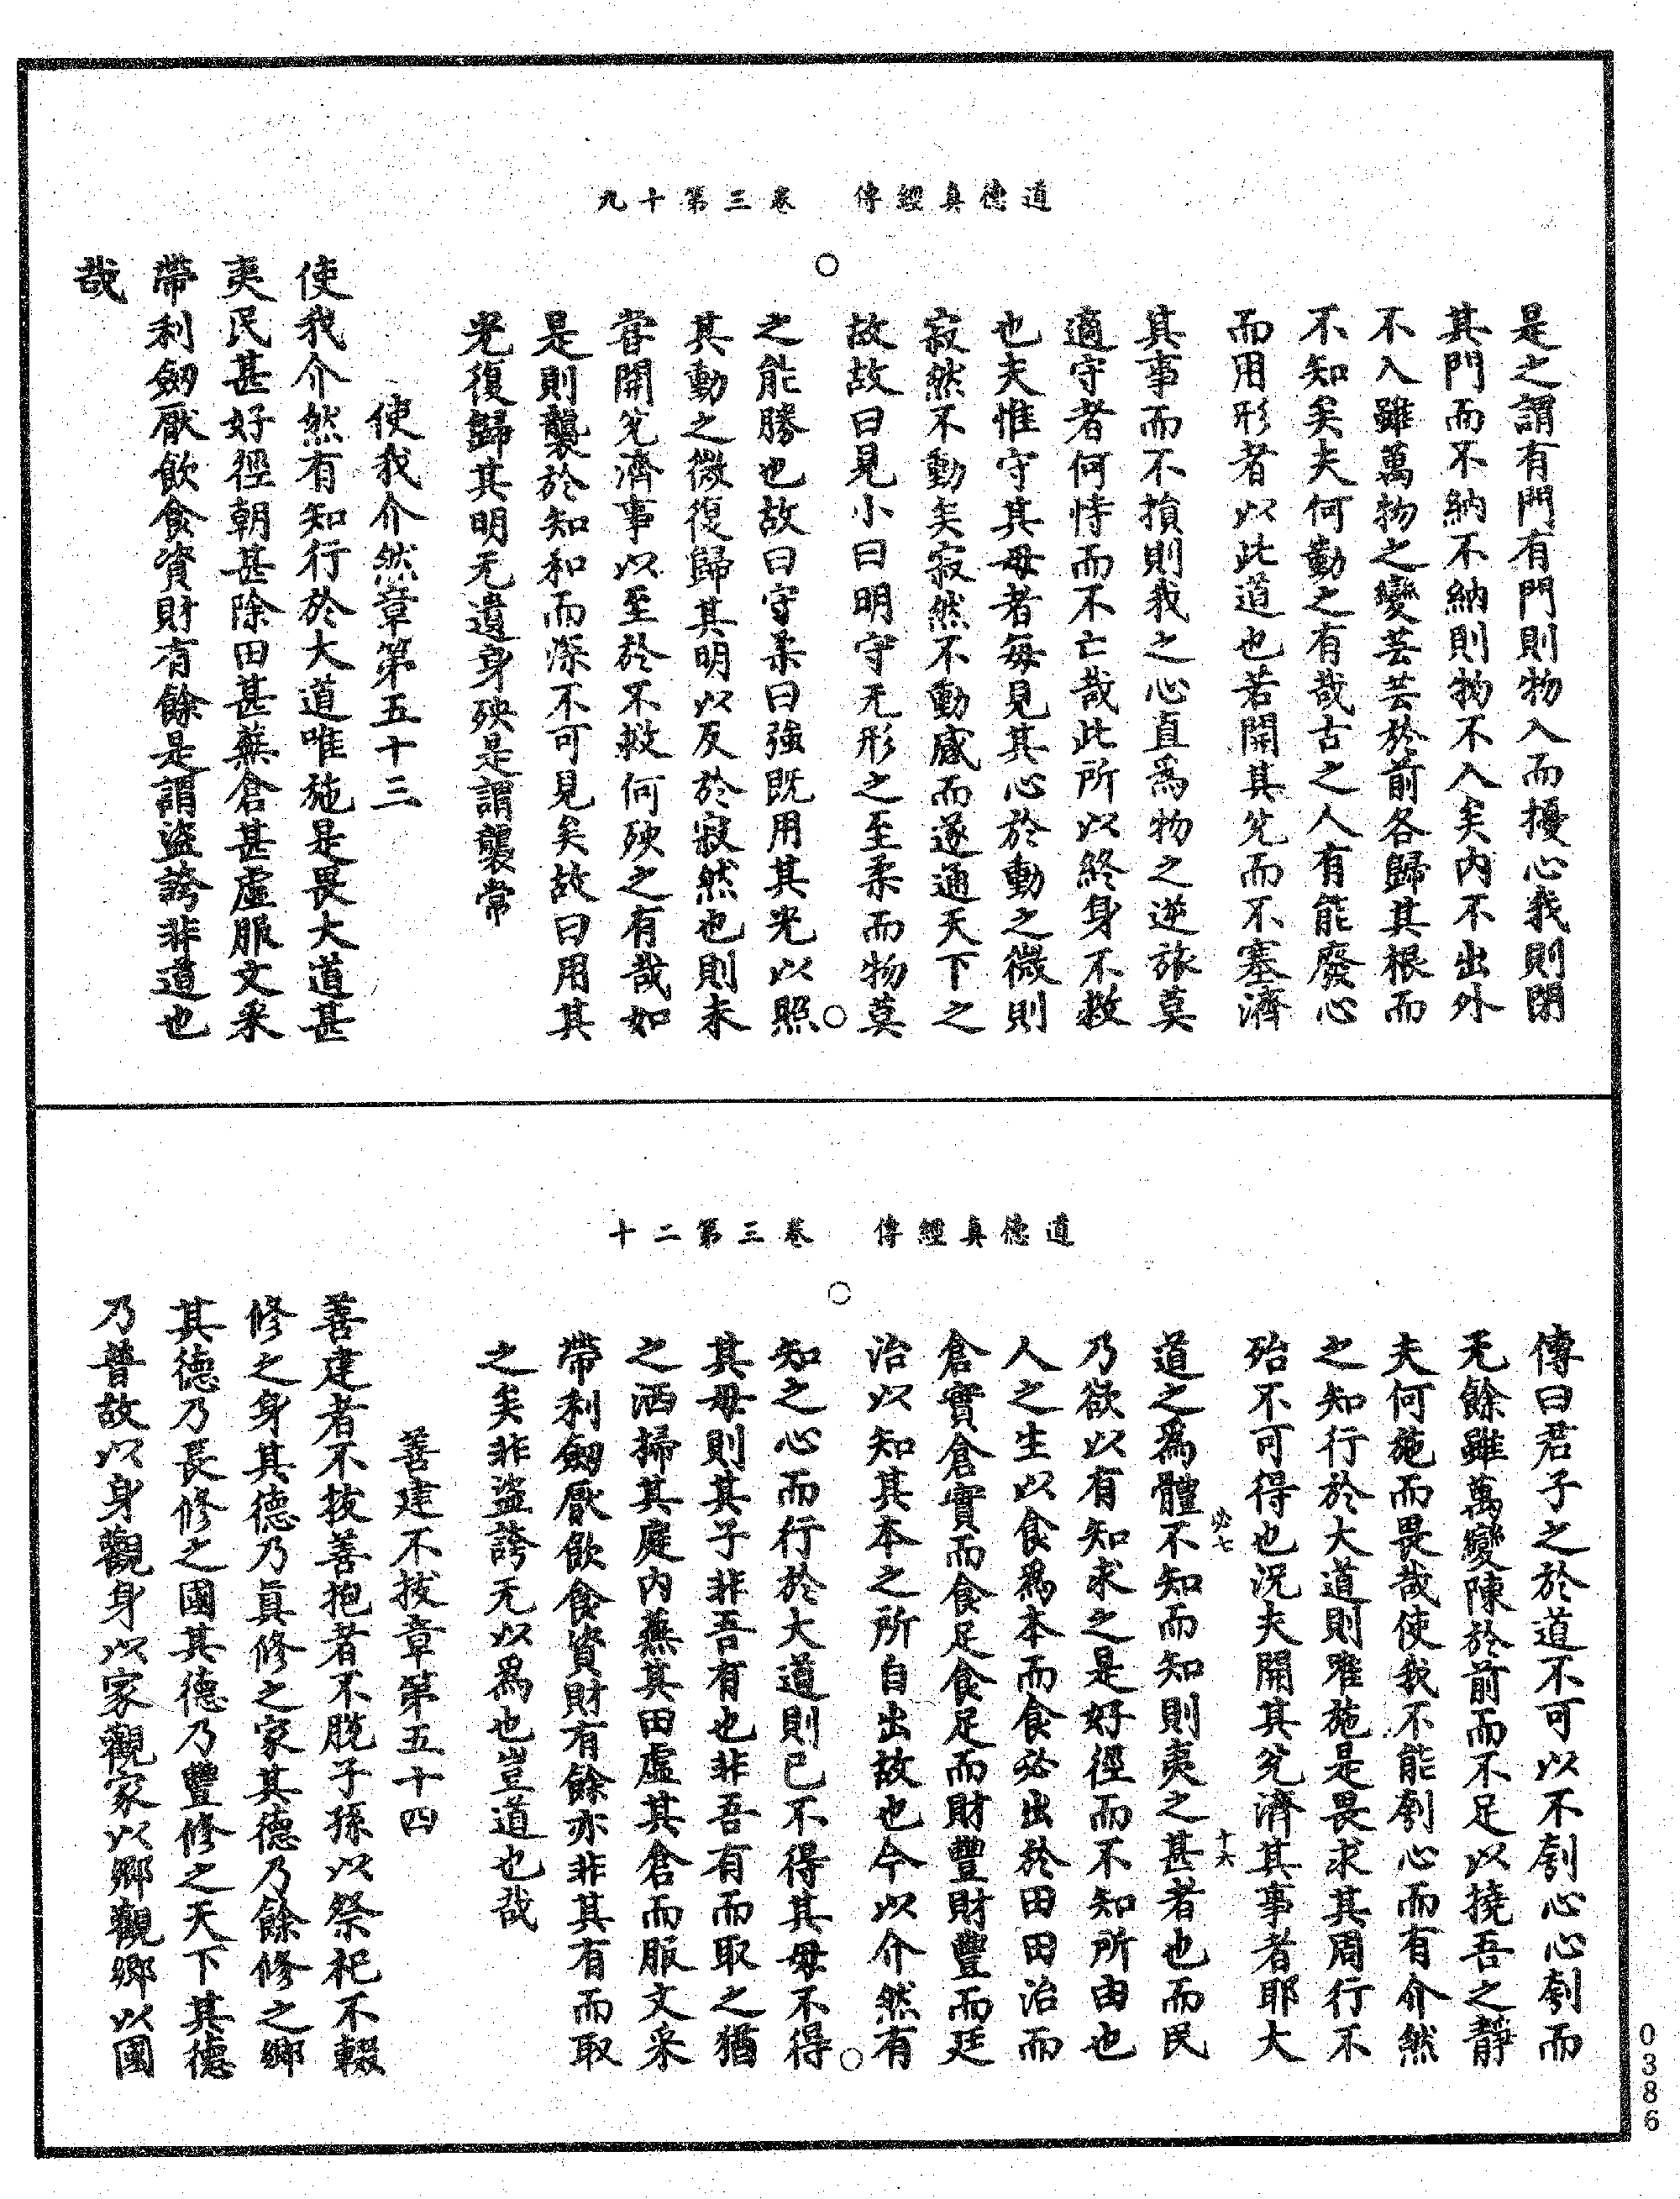 道德真經傳　卷三第十九
是之謂有門有門則物入而擾心我則閉
其門而不納不納則物不入矣內不出外
不入雖萬物之變芸芸於前各歸其根而
不知矣夫何勤之有哉古之人有能廢心
而用形者以此道也若開其兊而不塞濟
其事而不損則我之心直爲物之逆旅莫
適守者何恃而不亡哉此所以終身不救
也夫惟守其母者每見其心於動之微則
寂然不動矣寂然不動感而遂通天下之
故故曰見小曰明守无形之至柔而物莫
之能勝也故曰守柔曰強既用其光以照
其動之微復歸其明以反於寂然也則未
甞開兊濟事以至於不救何殃之有哉如
是則襲於知和而深不可見矣故曰用其
光復歸其明无遺身殃是謂襲常
使我介然章第五十三
使我介然有知行於大道唯施是畏大道甚
夷民甚好徑朝甚除田甚蕪倉甚虛服文采
帶利劒厭飲食資財有餘是謂盜誇非道也
哉
道德真經傳　卷三第二十
傳曰君子之於道不可以不刳心心刳而
无餘雖萬變陳於前而不足以撓吾之靜
夫何施而畏哉使我不能刳心而有介然
之知行於大道則唯施是畏求其周行不
殆不可得也況夫開其兊濟其事者耶大
必七　十六
道之爲體不知而知則夷之甚者也而民
乃欲以有知求之是好徑而不知所由也
人之生以食爲本而食必出於田田治而
倉實倉實而食足食足而財豐財豐而廷
治以知其本之所自出故也今以介然有
知之心而行於大道則已不得其母不得
其母則其子非吾有也非吾有而取之猶
之洒掃其庭內蕪其田虛其倉而服文采
帶利劒厭飲食資財有餘亦非其有而取
之矣非盜誇无以爲也豈道也哉
善建不拔章第五十四
善建者不拔善抱者不脫子孫以祭祀不輟
修之身其德乃眞修之家其德乃餘修之鄉
其德乃長修之國其德乃豐修之天下其德
乃普故以身觀身以家觀家以鄉觀鄉以國
0386